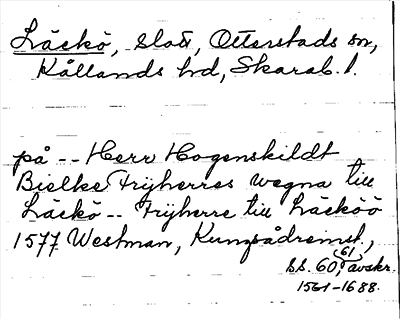 Läckö, slott, Otterstads sn,
Kållands hd, Skarab. l.
på -- Herr Hogenskildt
Bielke Frijherres wegna till
Läckö -- Frijherre till Läcköö
1577 Westman,
ss. 60, 61, avskr.
1561-1688.